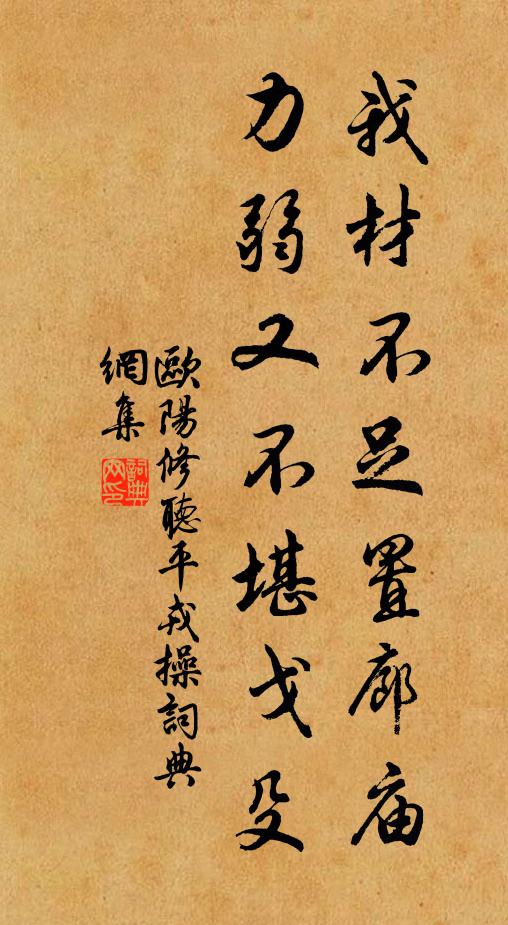 我材不足置廊庙
力弱又不堪戈殳
歐陽修聽平戎操詞典
網集
詞典网印